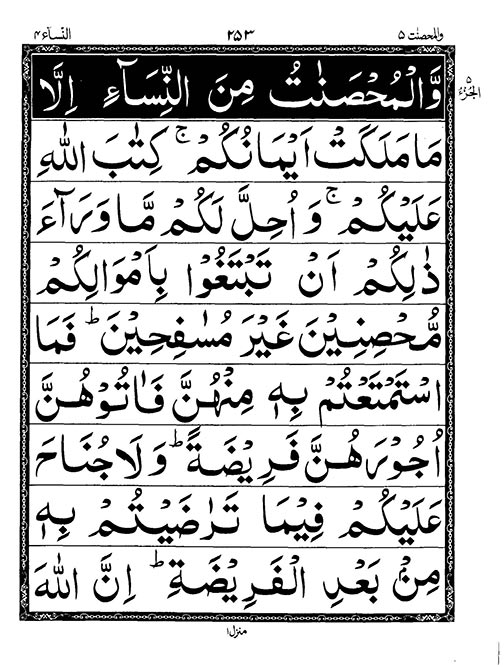 والمحصنت ٥ ٢٥٣ النسآء ٤
الجزء ٥
وَّالْمُحْصَنٰتُ مِنَ النِّسَآءِ اِلَّا
مَا مَلَكَتْ اَيْمَانُكُمْ ۚ كِتٰبَ اللّٰهِ
عَلَيْكُمْ ۚ وَ اُحِلَّ لَكُمْ مَّا وَرَآءَ
ذٰلِكُمْ اَنْ تَبْتَغُوْا بِاَمْوَالِكُمْ
مُّحْصِنِيْنَ غَيْرَ مُسٰفِحِيْنَ ؕ فَمَا
اسْتَمْتَعْتُمْ بِهٖ مِنْهُنَّ فَاٰتُوْهُنَّ
اُجُوْرَهُنَّ فَرِيْضَةً ؕ وَ لَا جُنَاحَ
عَلَيْكُمْ فِيْمَا تَرٰضَيْتُمْ بِهٖ
مِنْۢ بَعْدِ الْفَرِيْضَةِ ؕ اِنَّ اللّٰهَ
منزل ١